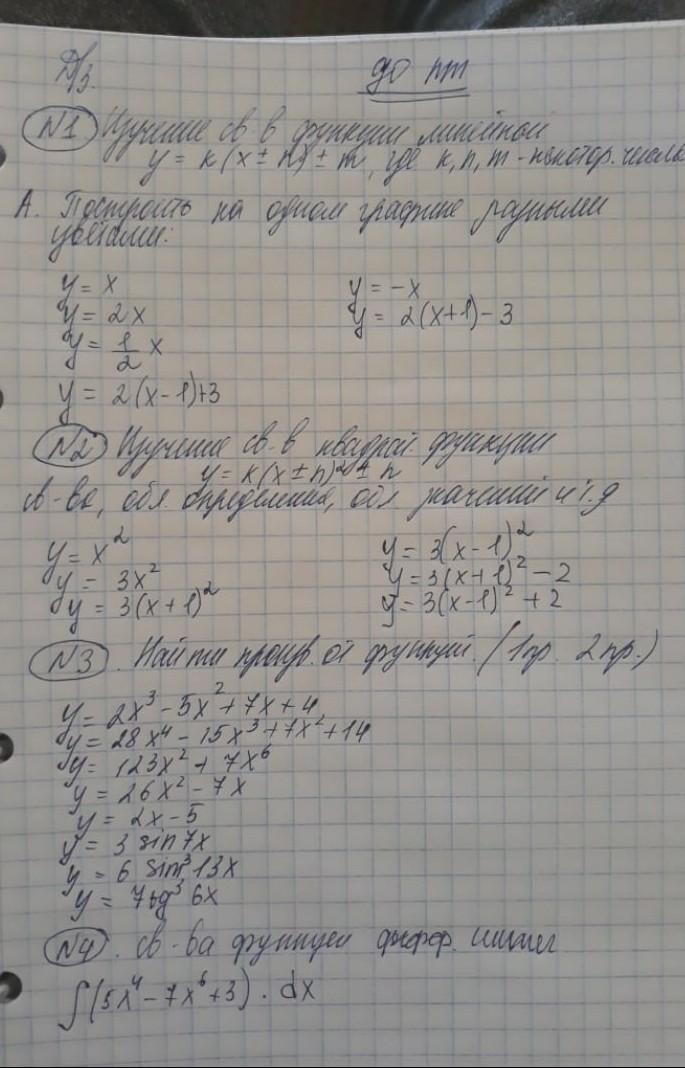 Д/з. до пт
N1 Изучение св-в функции линейной
y = k(x ± n) ± m, где k, n, m - некотор. числа
А. Построить на одном графике разными
цветами:
y = x y = -x
y = 2x y = 2(x+1)-3
y = 1/2 x
y = 2(x-1)+3
N2 Изучение св-в квадрат. функции
y = k(x ± n)² ± n
св-ва, обл. определения, обл. значений и т.д
y = x² y = 3(x-1)²
y = 3x² y = 3(x+1)² - 2
y = 3(x+1)² y = 3(x-1)² + 2
N3. Найти произв. от функций. (1 пр. 2 пр.)
y = 2x³ - 5x² + 7x + 4
y = 28x⁴ - 15x³ + 7x² + 14
y = 123x² + 7x⁶
y = 26x² - 7x
y = 2x - 5
y = 3 sin 7x
y = 6 sin³ 13x
y = 7 tg³ 6x
N4. св-ва функций
∫(5x⁴ - 7x⁶ + 3) · dx